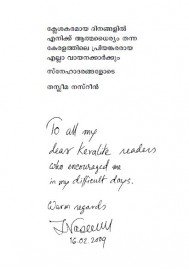 ക്ലേശകരമായ ദിനങ്ങളിൽ
എനിക്ക് ആത്മധൈര്യം തന്ന
കേരളത്തിലെ പ്രിയങ്കരരായ
എല്ലാ വായനക്കാർക്കും
സ്നേഹാദരങ്ങളോടെ
തസ്ലീമ നസ്റിൻ
To all my
dear Keralite readers
who encouraged me
in my difficult days.
Warm regards
T. Nasreen
16.02.2009